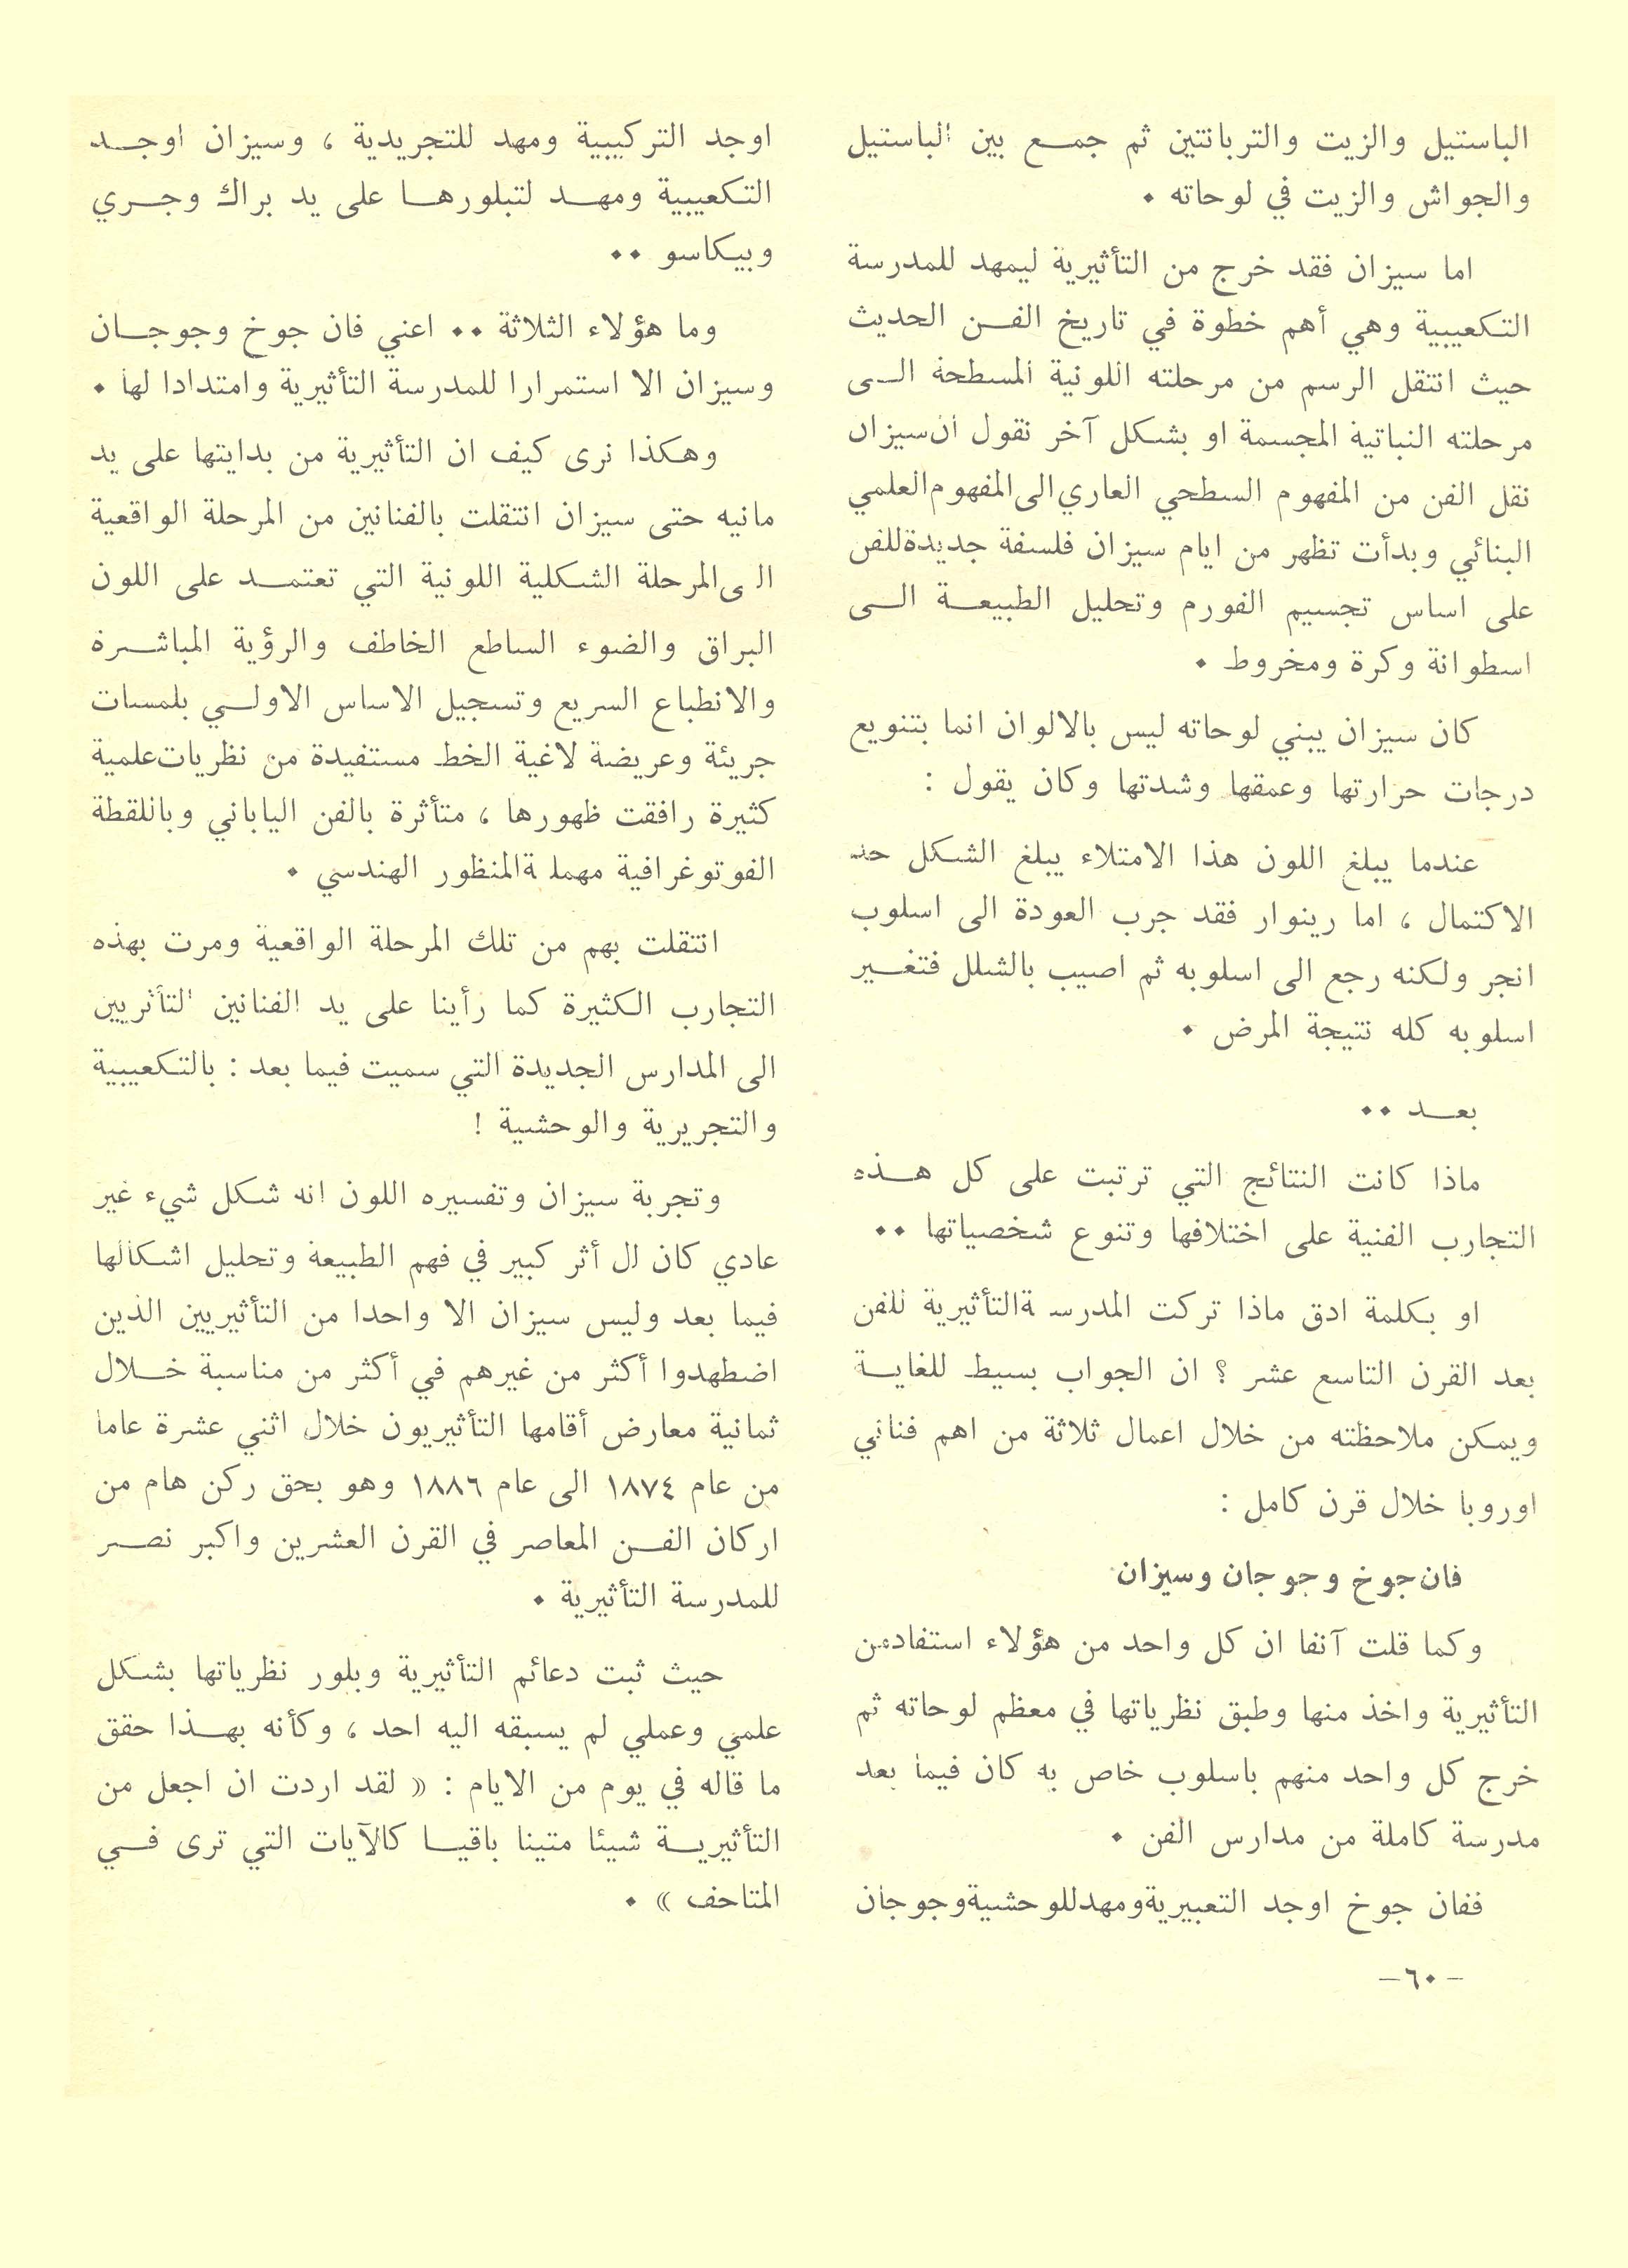 الباستيل والزيت والتربانتين ثم جمع بين الباستيل
والجواش والزيت في لوحاته ٠
اما سيزان فقد خرج من التأثيرية ليمهد للمدرسة
التكعيبية وهي أهم خطوة في تاريخ الفن الحديث
حيث انتقل الرسم من مرحلته اللونية المسطحة الى
مرحلته النباتية المجسمة او بشكل آخر نقول ان سيزان
نقل الفن من المفهوم السطحي العاري الى المفهوم العلمي
البنائي وبدأت تظهر من ايام سيزان فلسفة جديدة للفن
على اساس تجسيم الفورم وتحليل الطبيعة الى
اسطوانة وكرة ومخروط ٠
كان سيزان يبني لوحاته ليس بالالوان انما بتنويع
درجات حرارتها وعمقها وشدتها وكان يقول :
عندما يبلغ اللون هذا الامتلاء يبلغ الشكل حد
الاكتمال ، اما رينوار فقد جرب العودة الى اسلوب
انجر ولكنه رجع الى اسلوبه ثم اصيب بالشلل فتغير
اسلوبه كله نتيجة المرض ٠
بعد ٠٠
ماذا كانت النتائج التي ترتبت على كل هذه
التجارب الفنية على اختلافها وتنوع شخصياتها ٠٠
او بكلمة ادق ماذا تركت المدرسة التأثيرية للفن
بعد القرن التاسع عشر ؟ ان الجواب بسيط للغاية
ويمكن ملاحظته من خلال اعمال ثلاثة من اهم فناني
اوروبا خلال قرن كامل :
فان جوخ وجوجان وسيزان
وكما قلت آنفا ان كل واحد من هؤلاء استفاد من
التأثيرية واخذ منها وطبق نظرياتها في معظم لوحاته ثم
خرج كل واحد منهم باسلوب خاص به كان فيما بعد
مدرسة كاملة من مدارس الفن ٠
ففان جوخ اوجد التعبيرية ومهد للوحشية وجوجان
اوجد التركيبية ومهد للتجريدية ، وسيزان اوجد
التكعيبية ومهد لتبلورها على يد براك وجري
وبيكاسو ٠٠
وما هؤلاء الثلاثة ٠٠ اعني فان جوخ وجوجان
وسيزان الا استمرارا للمدرسة التأثيرية وامتدادا لها ٠
وهكذا نرى كيف ان التأثيرية من بدايتها على يد
مانيه حتى سيزان انتقلت بالفنانين من المرحلة الواقعية
الى المرحلة الشكلية اللونية التي تعتمد على اللون
البراق والضوء الساطع الخاطف والرؤية المباشرة
والانطباع السريع وتسجيل الاساس الاولي بلمسات
جريئة وعريضة لاغية الخط مستفيدة من نظريات علمية
كثيرة رافقت ظهورها ، متأثرة بالفن الياباني وباللقطة
الفوتوغرافية مهملة المنظور الهندسي ٠
انتقلت بهم من تلك المرحلة الواقعية ومرت بهذه
التجارب الكثيرة كما رأينا على يد الفنانين التأثريين
الى المدارس الجديدة التي سميت فيما بعد : بالتكعيبية
والتجريرية والوحشية !
وتجربة سيزان وتفسيره اللون انه شكل شيء غير
عادي كان ل أثر كبير في فهم الطبيعة وتحليل اشكالها
فيما بعد وليس سيزان الا واحدا من التأثيريين الذين
اضطهدوا أكثر من غيرهم في أكثر من مناسبة خلال
ثمانية معارض أقامها التأثيريون خلال اثني عشرة عاما
من عام ١٨٧٤ الى عام ١٨٨٦ وهو بحق ركن هام من
اركان الفن المعاصر في القرن العشرين واكبر نصر
للمدرسة التأثيرية ٠
حيث ثبت دعائم التأثيرية وبلور نظرياتها بشكل
علمي وعملي لم يسبقه اليه احد ، وكأنه بهذا حقق
ما قاله في يوم من الايام : « لقد اردت ان اجعل من
التأثيرية شيئا متينا باقيا كالآيات التي ترى في
المتاحف » ٠
– ٦٠ –